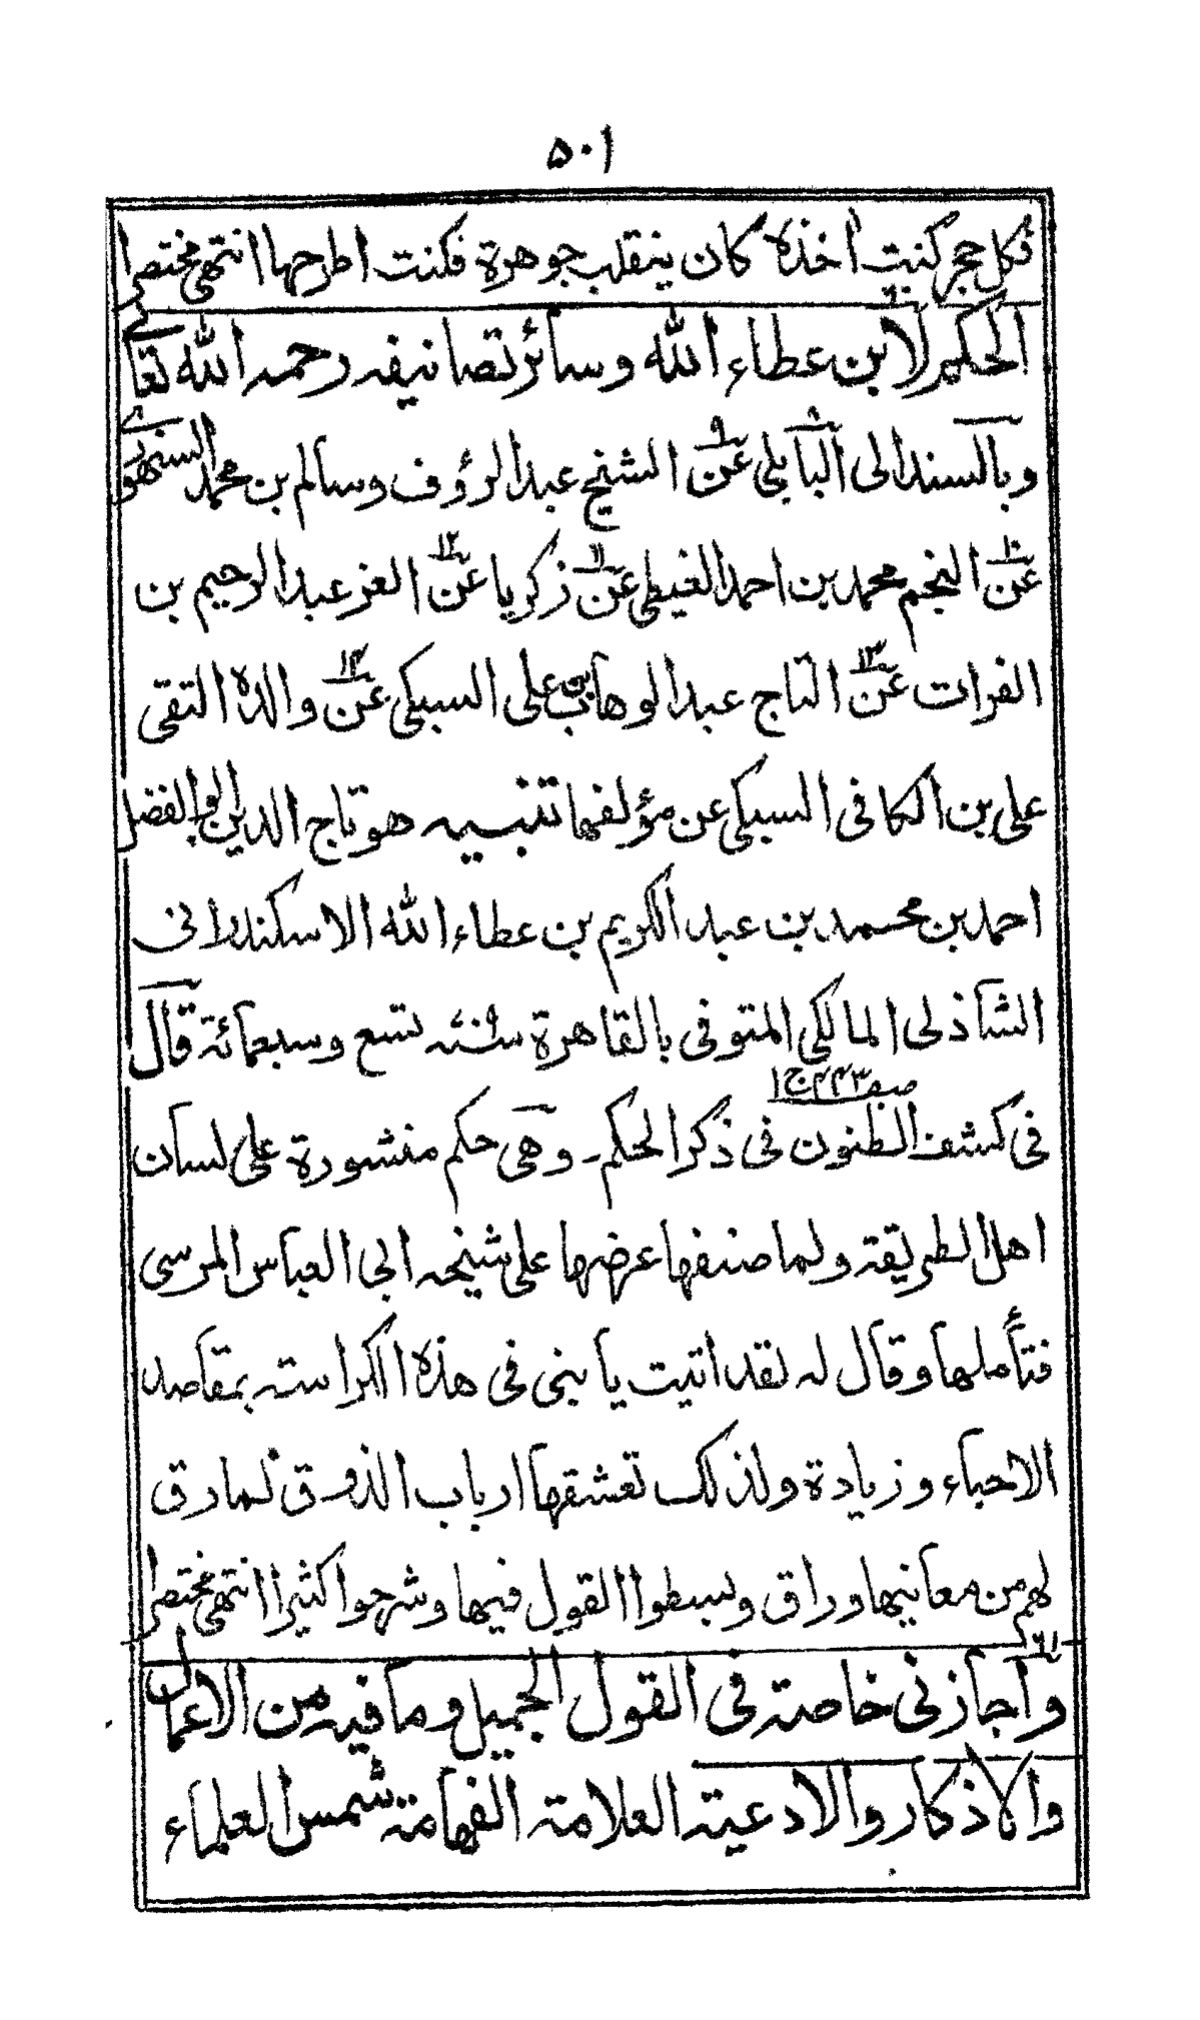 ٥٠١
فكل حجر كنت اخذه كان ينقلب جوهرة فكنت اطرحها انتهى مختصرا
٦٠
الحكم لابن عطاء الله وسائر تصانيفه رحمه الله تعالى
وبالسند الى البابلى ٨ عن ٩ الشيخ عبد الرؤف وسالم بن محمد السنهورى
عن ١٠ النجم محمد بن احمد الغيطى عن ١١ زكريا عن ١٢ العز عبد الرحيم بن
الفرات عن ١٣ التاج عبد الوهاب بن على السبكى عن ١٤ والده التقى
على بن الكافى السبكى عن مؤلفها تنبيه هو تاج الدين ابو الفضل
احمد بن محمد بن عبد الكريم بن عطاء الله الاسكندرانى
الشاذلى المالكى المتوفى بالقاهرة سنة ٧٠٩ تسع وسبعمائة قال
صفه ٤٤٣ ج ١
فى كشف الظنون فى ذكر الحكم۔ وهى حكم منشورة على لسان
اهل الطريقة ولما صنفها عرضها على شيخه ابى العباس المرسى
فتأملها وقال له لقد اتيت يا بنى فى هذه الكراسة بمقاصد
الاحياء وزيادة ولذلك تعشقها ارباب الذوق لما رق
لهم من معانيها وراق وبسطوا القول فيها وشرحوا كثيرا انتهى مختصرا
٦١
واجازنى خاصة فى القول الجميل وما فيه من الاعمال
والاذكار والادعية العلامة الفهامة شمس العلماء